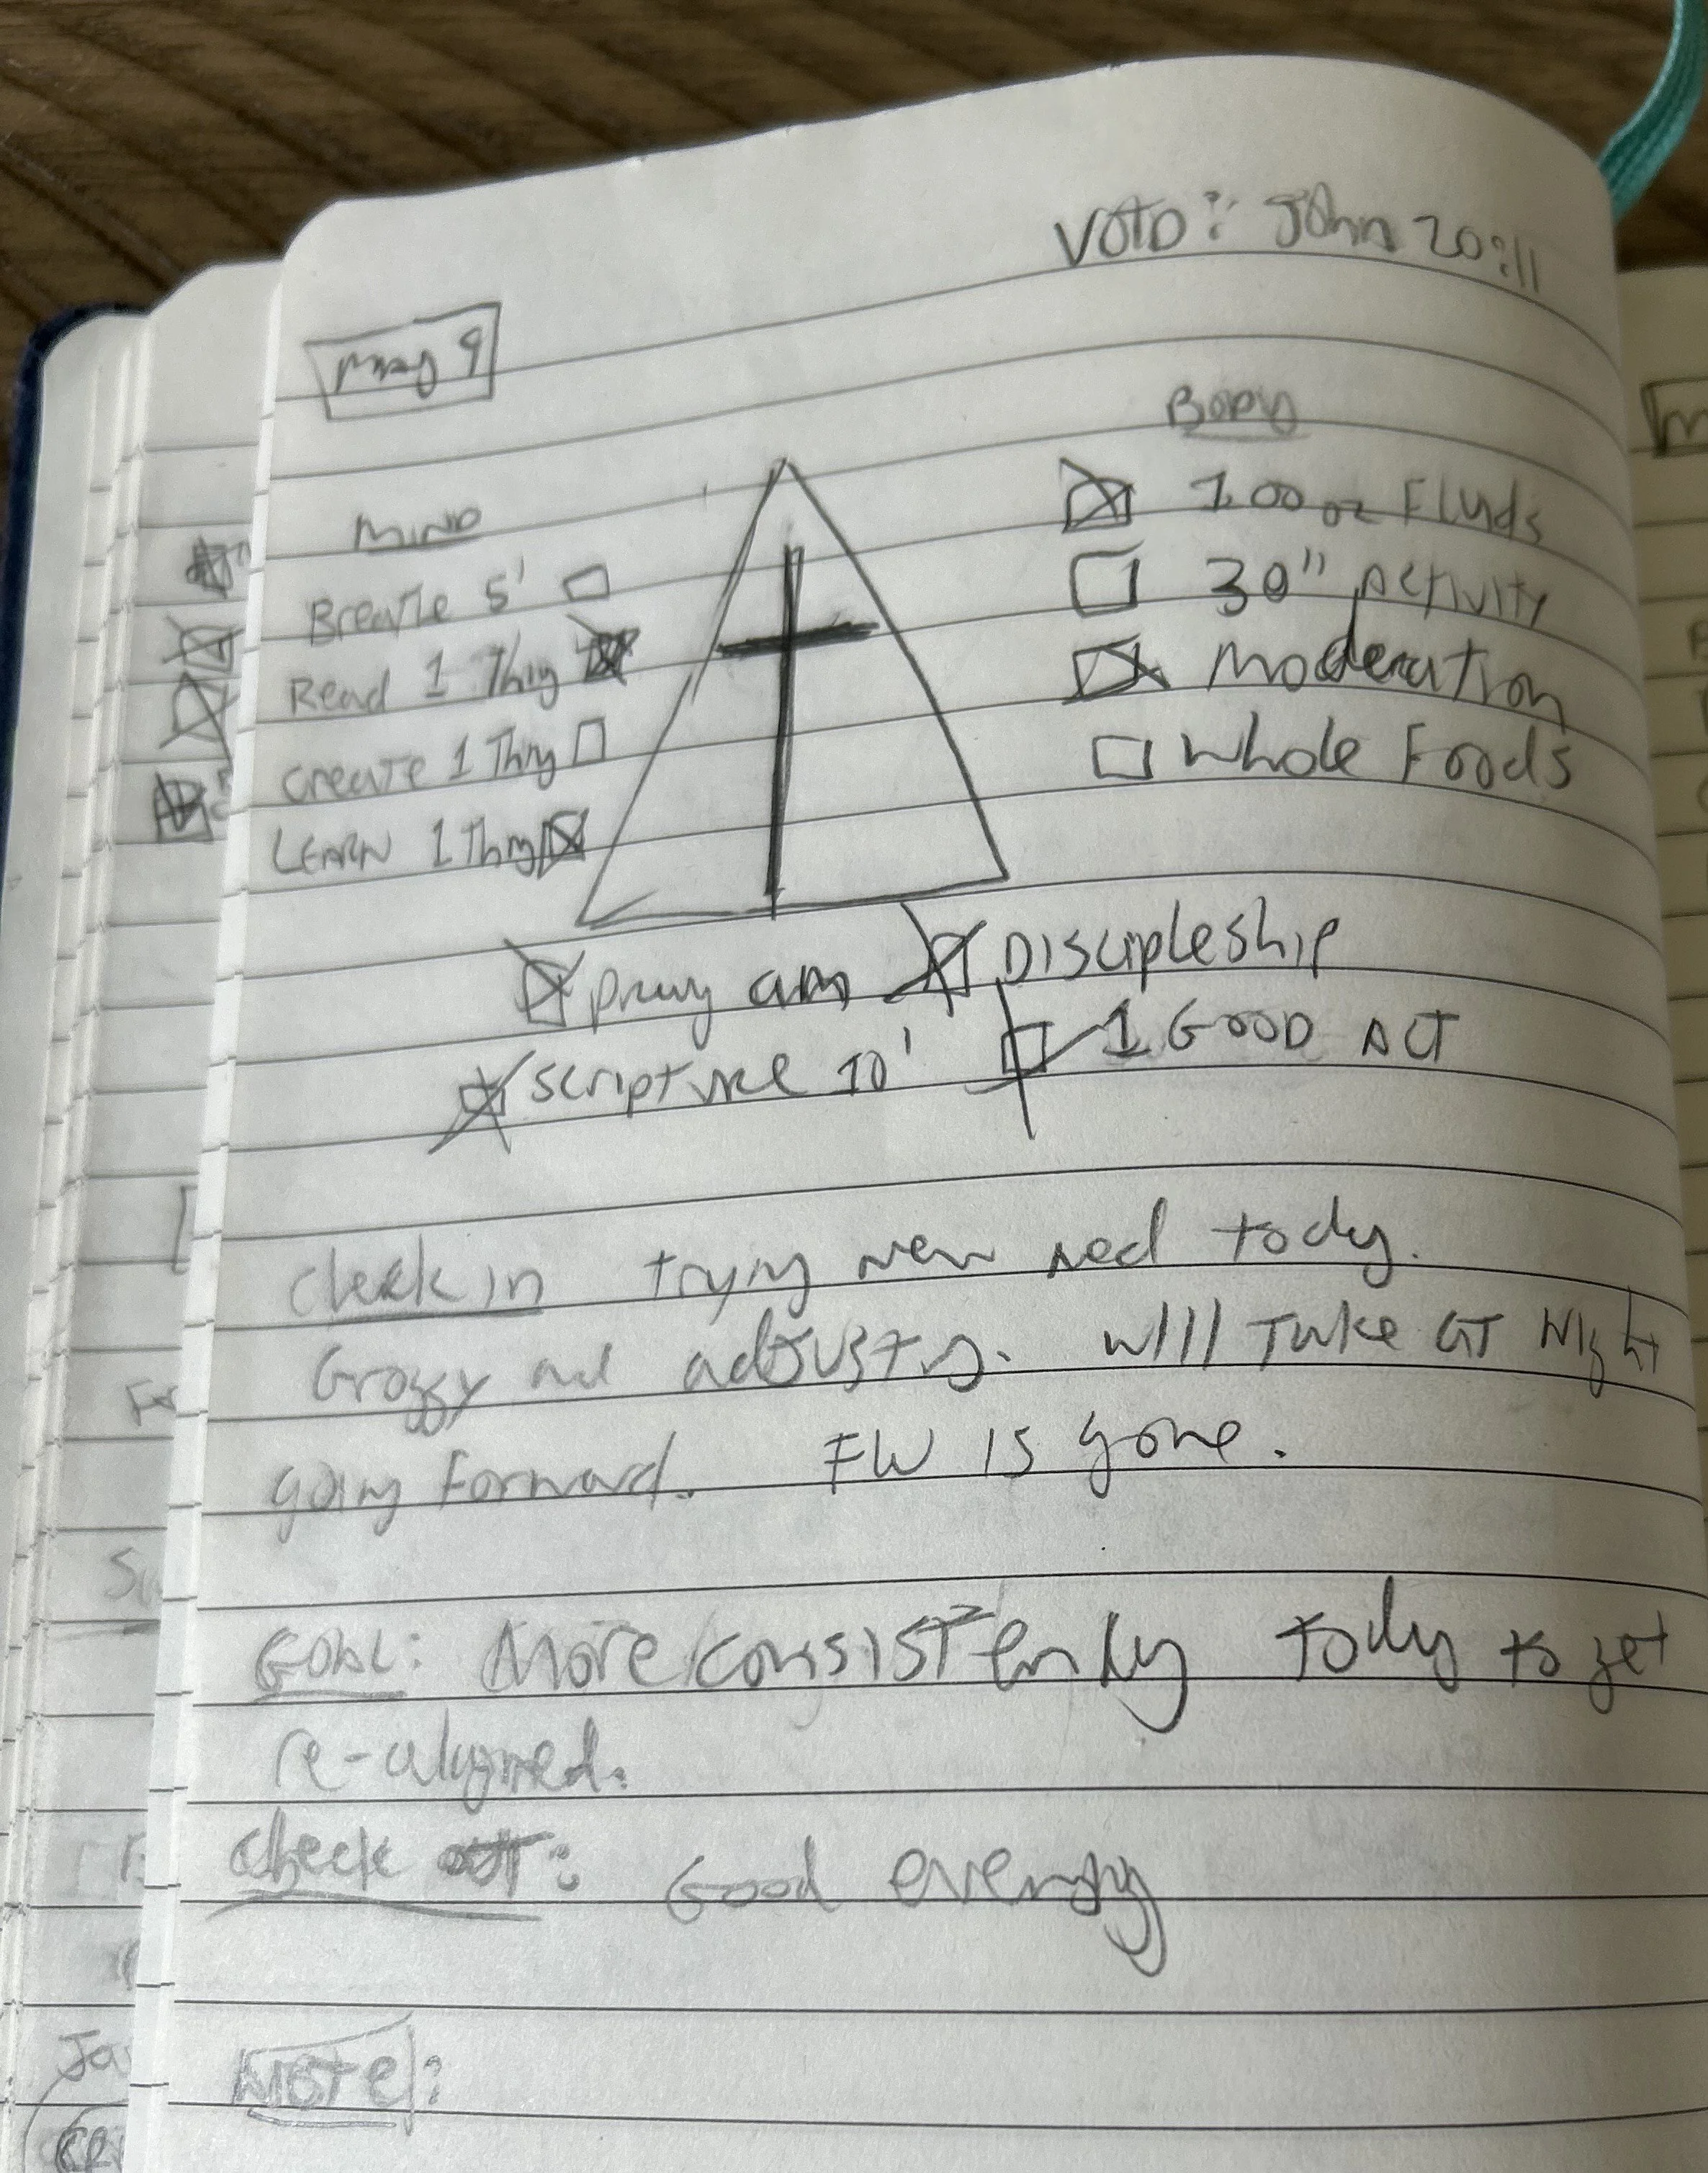 VOTD: John 20:11
May 9
MIND
Breathe 5'
Read 1 Thing
Create 1 Thing
LEARN 1 Thing
BODY
100 oz Fluids
30" Activity
Moderation
Whole Foods
pray am
Discipleship
scripture 10'
1 GOOD ACT
check in trying new med today.
Groggy and adjusting. will Take at Night
going forward. FW is gone.
GOAL: More consistently today to get
re-aligned.
check out: Good energy
NOTE: